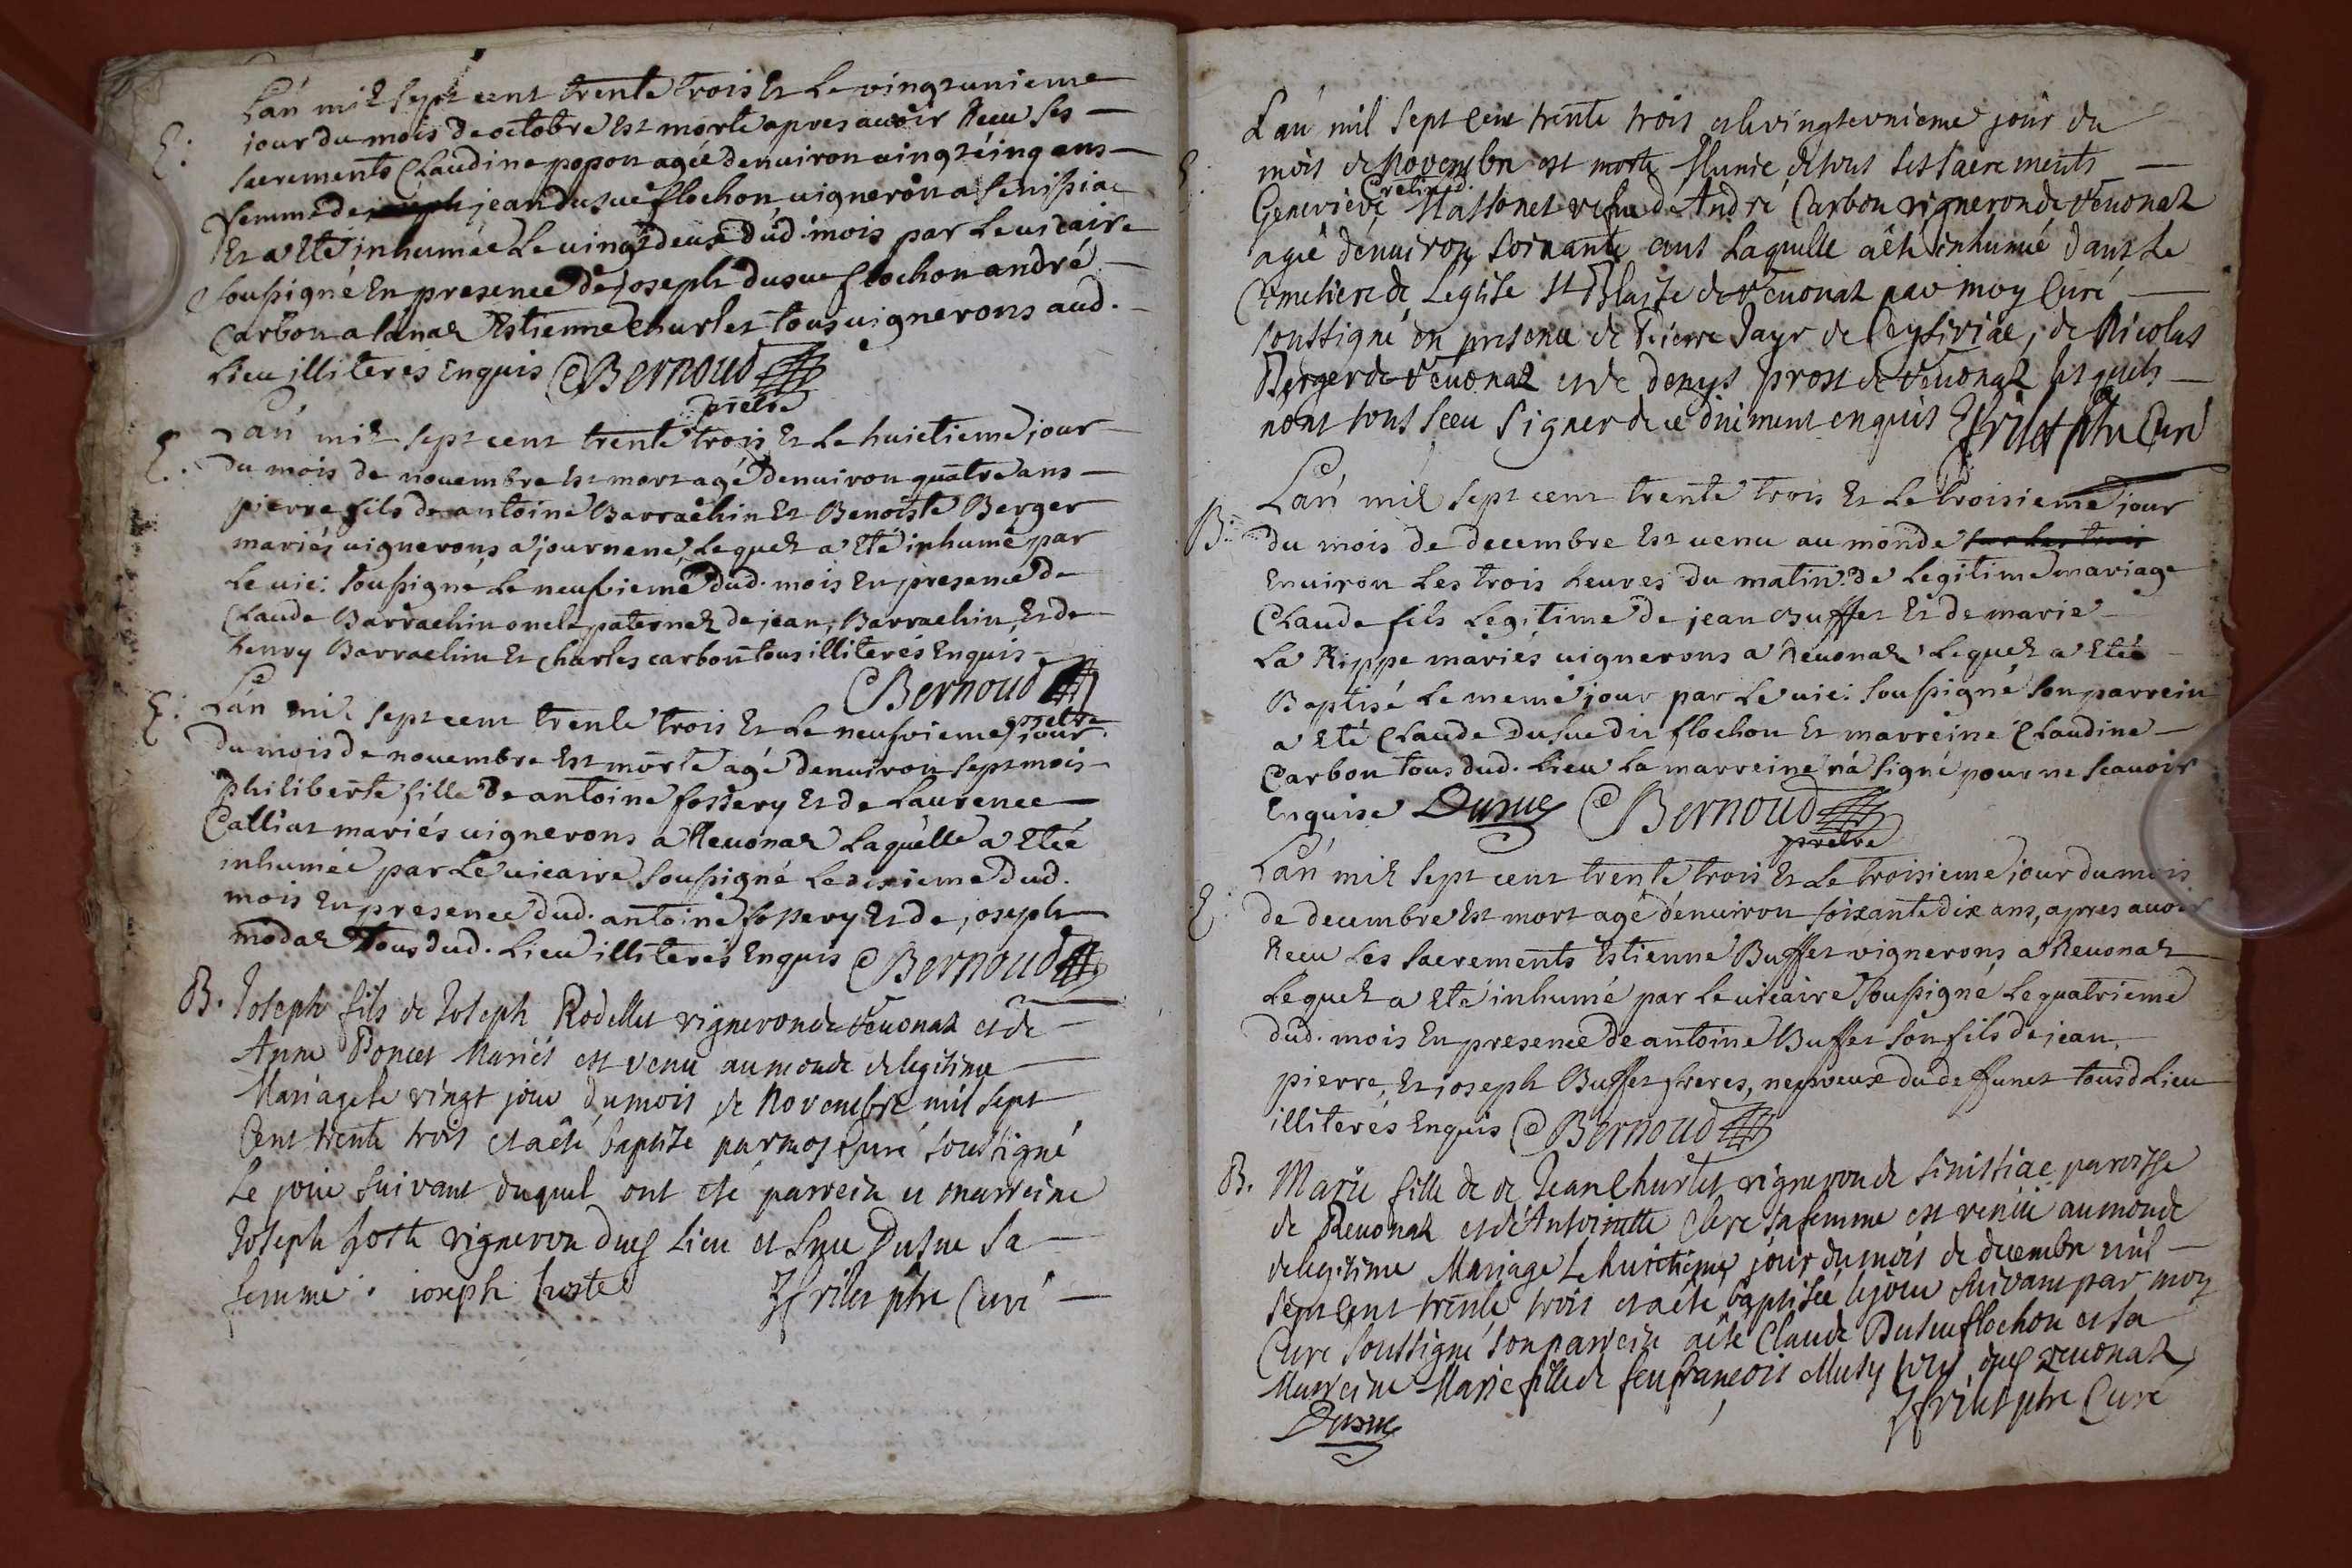 L'an mil sept cent trente trois Et Le vingt unieme
E: jour du mois de octobre Est morte apres avoir Receu ses
sacrements Claudine popon agée denuiron vingt cinq ans
femme de jean dusue flochon uigneron a senissiac
Et a Eté inhumée Le uingt deux dud. mois par Le uicaire
soussigné En presence de joseph dusue flochon andré
Carbon a lanar Estienne Charles tous uignerons aud.
Lieu illiterés Enquis Bernoud
prêtre
L'an mil sept cent trente trois Et Le huictieme jour
E. du mois de nouembre Est mort agé denuiron quatre ans
pierre fils de antoine Barrachin Et Benoiste Berger
mariés uignerons a journene Lequel a Eté inhumé par
Le uic: soussigné Le neufvieme dud. mois En presence de
Claude Barrachin oncle paternel de jean, Barrachin Et de
henry Barrachin Et charles carbon tous illiterés Enquis
Bernoud
prêtre
E: L'an mil sept cent trente trois Et Le neufvieme jour
du mois de nouembre Est morte agé denuiron sept mois
philiberte fille de antoine fossery Et de Laurence
Calliat mariés uignerons a Reuonas Laquelle a Etéé
inhumée par Le uicaire soussigné Le dixieme dud.
mois En presence dud. antoine fossery Et de joseph
modas tous dud. Lieu illiterés Enquis Bernoud
B. Joseph fils de Joseph Rodellet vigneron de Reuonas et de
Anne Poncet Mariés est venu au monde de legitime
Mariage le vingt jour du mois de Novembre mil sept
Cent trente trois et a été baptizé par moy Curé soussigné
Le jour suivant duquel ont été parrein et marreine
Joseph hoste vigneron dud Lieu et Dusue sa
femme. ioseph hoste frilet ptre Curé
L'an mil sept cent trente trois et le vingt et vnieme jour du
E. mois de Novembre est morte Munie de tous ses sacrements
Genevieve Massonet vefue d'André Carbon vigneron de Reuonas
agée d'enuiron soixante ans Laquelle a été inhumée dans Le
Cimetiere de Leglise St Blaise de Reuonas par moy Curé
soussigné en presence de Pierre Jayr de Ceyssiriac, de Nicolas
Berger de Reuonas et de denys prost de Reuonas les quels
n'ont tous sceu signer de ce duement enquis frilet ptre Curé
L'an mil sept cent trente trois Et Le troisieme jour
B. du mois de decembre Est uenu au monde
Enuiron Les trois heures du matin de Legitime mariage
Claude fils Legitime de jean Buffet Et de marie
La Rippe mariés uignerons a Reuonas Lequel a Etéé
Baptisé Le meme jour par Le uic: soussigné son parrein
a Eté Claude Dusue dit flochon Et marreine Claudine
Carbon tous dud. Lieu La marreine n'a signé pour ne scauoir
Enquise Dusue Bernoud
prêtre
L'an mil sept cent trente trois Et Le troisieme jour du mois
E: de decembre Est mort agé denuiron soixante dix ans, apres auoir
Receu Les sacrements Estienne Buffet vignerons a Reuonas
Lequel a Eté inhumé par Le uicaire soussigné Le quatrieme
dud. mois En presence de antoine Buffet son fils de jean,
pierre, Et joseph Buffet freres, nepveux du deffunct tous d Lieu
illiterés Enquis Bernoud
B. Marie fille de de Jean Charlet vigneron de Sinissiac paroisse
de Reuonas et de Antoinette Clerc sa femme est venüe au monde
de legitime Mariage Le huictieme jour du mois de decembre mil
sept cent trente trois et a été baptisée le jour suivant par moy
Curé soussigné son parrein a été Claude Dusue flochon et sa
Marreine Marie fille de feu françois Musy tous dud Reuonas
Dusue frilet ptre Curé